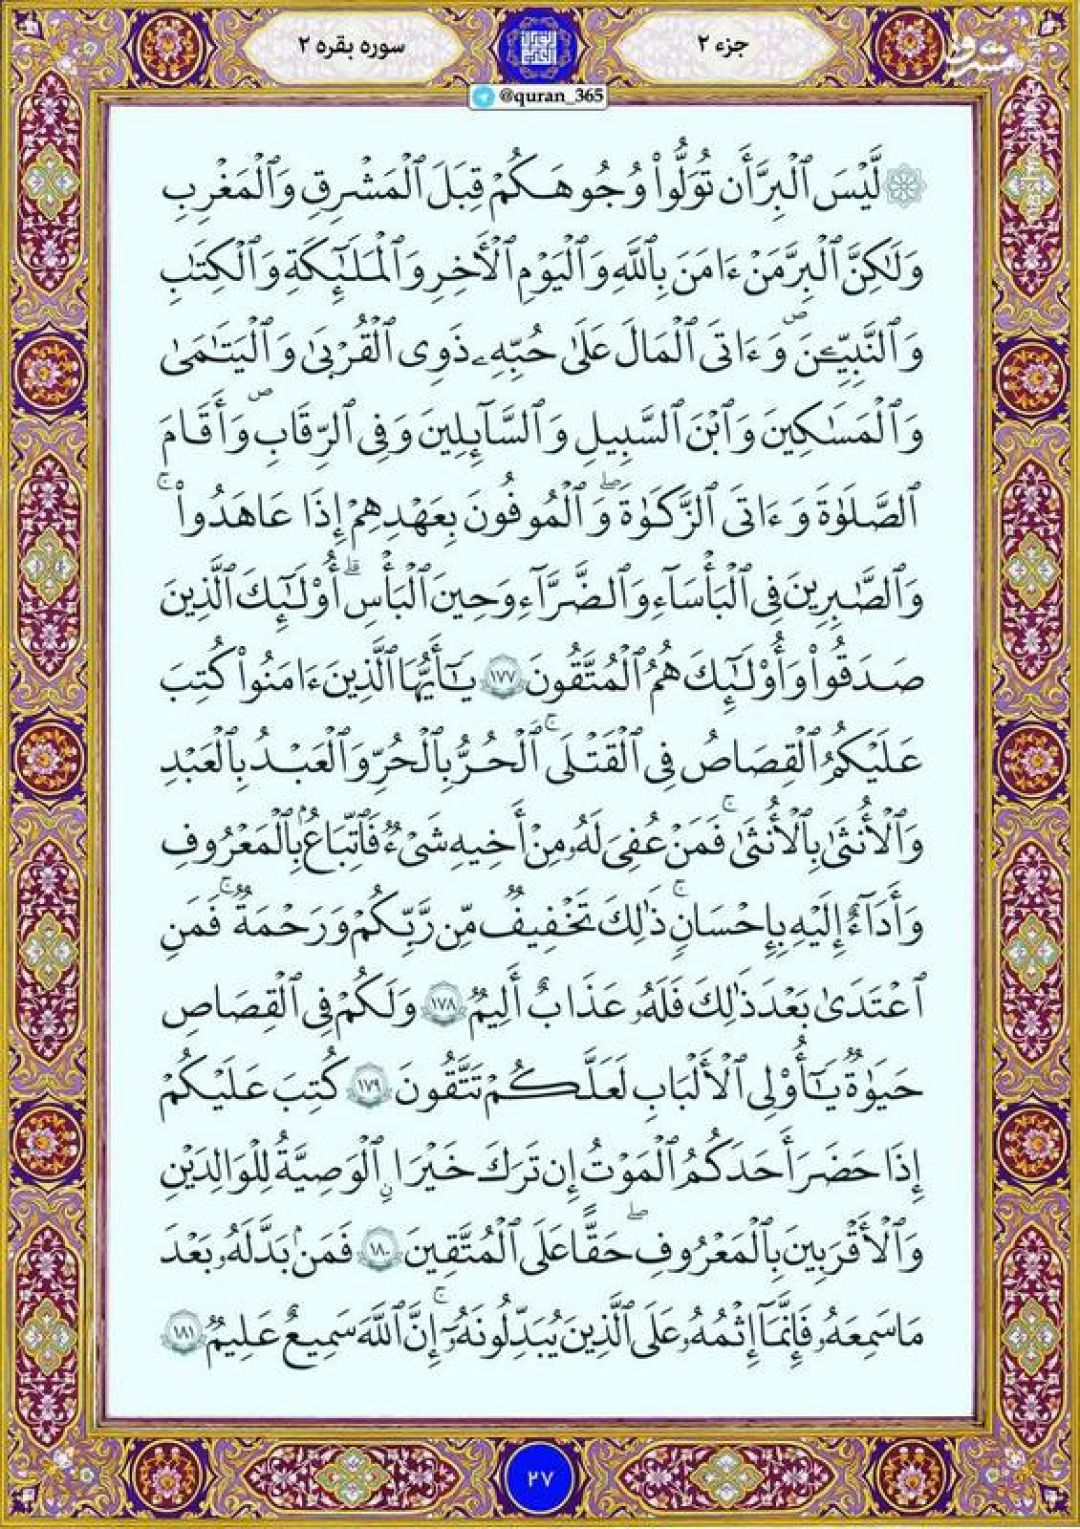 جزء ۲
سوره بقره ۲
@quran_365
۞ لَّيْسَ ٱلْبِرَّ أَن تُوَلُّوا۟ وُجُوهَكُمْ قِبَلَ ٱلْمَشْرِقِ وَٱلْمَغْرِبِ
وَلَٰكِنَّ ٱلْبِرَّ مَنْ ءَامَنَ بِٱللَّهِ وَٱلْيَوْمِ ٱلْأَخِرِ وَٱلْمَلَٰٓئِكَةِ وَٱلْكِتَٰبِ
وَٱلنَّبِيِّـۧنَ وَءَاتَى ٱلْمَالَ عَلَىٰ حُبِّهِۦ ذَوِى ٱلْقُرْبَىٰ وَٱلْيَتَٰمَىٰ
وَٱلْمَسَٰكِينَ وَٱبْنَ ٱلسَّبِيلِ وَٱلسَّآئِلِينَ وَفِى ٱلرِّقَابِ وَأَقَامَ
ٱلصَّلَوٰةَ وَءَاتَى ٱلزَّكَوٰةَ وَٱلْمُوفُونَ بِعَهْدِهِمْ إِذَا عَاهَدُوا۟ ۖ
وَٱلصَّٰبِرِينَ فِى ٱلْبَأْسَآءِ وَٱلضَّرَّآءِ وَحِينَ ٱلْبَأْسِ ۗ أُو۟لَٰٓئِكَ ٱلَّذِينَ
صَدَقُوا۟ وَأُو۟لَٰٓئِكَ هُمُ ٱلْمُتَّقُونَ ۱۷۷ يَٰٓأَيُّهَا ٱلَّذِينَ ءَامَنُوا۟ كُتِبَ
عَلَيْكُمُ ٱلْقِصَاصُ فِى ٱلْقَتْلَى ۚ ٱلْحُرُّ بِٱلْحُرِّ وَٱلْعَبْدُ بِٱلْعَبْدِ
وَٱلْأُنثَىٰ بِٱلْأُنثَىٰ ۚ فَمَنْ عُفِىَ لَهُۥ مِنْ أَخِيهِ شَىْءٌ فَٱتِّبَاعٌۢ بِٱلْمَعْرُوفِ
وَأَدَآءٌ إِلَيْهِ بِإِحْسَٰنٍ ۚ ذَٰلِكَ تَخْفِيفٌ مِّن رَّبِّكُمْ وَرَحْمَةٌ ۚ فَمَنِ
ٱعْتَدَىٰ بَعْدَ ذَٰلِكَ فَلَهُۥ عَذَابٌ أَلِيمٌ ۱۷۸ وَلَكُمْ فِى ٱلْقِصَاصِ
حَيَوٰةٌ يَٰٓأُو۟لِى ٱلْأَلْبَابِ لَعَلَّكُمْ تَتَّقُونَ ۱۷۹ كُتِبَ عَلَيْكُمْ
إِذَا حَضَرَ أَحَدَكُمُ ٱلْمَوْتُ إِن تَرَكَ خَيْرًا ٱلْوَصِيَّةُ لِلْوَٰلِدَيْنِ
وَٱلْأَقْرَبِينَ بِٱلْمَعْرُوفِ ۖ حَقًّا عَلَى ٱلْمُتَّقِينَ ۱۸۰ فَمَنۢ بَدَّلَهُۥ بَعْدَ
مَا سَمِعَهُۥ فَإِنَّمَآ إِثْمُهُۥ عَلَى ٱلَّذِينَ يُبَدِّلُونَهُۥٓ ۚ إِنَّ ٱللَّهَ سَمِيعٌ عَلِيمٌ ۱۸۱
۲۷